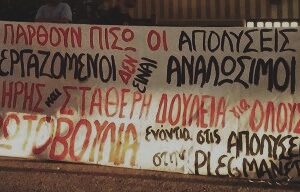 ΠΑΡΘΟΥΝ ΠΙΣΩ ΟΙ ΑΠΟΛΥΣΕΙΣ
ΕΡΓΑΖΟΜΕΝΟΙ ΔΕΝ ΕΙΝΑΙ ΑΝΑΛΩΣΙΜΟΙ
ΗΡΗΣ και ΣΤΑΘΕΡΗ ΔΟΥΛΕΙΑ για ΟΛΟΥΣ
ΩΤΟΒΟΥΛΙΑ ενάντια στις ΑΠΟΛΥΣΕ
στην PLEGMANET